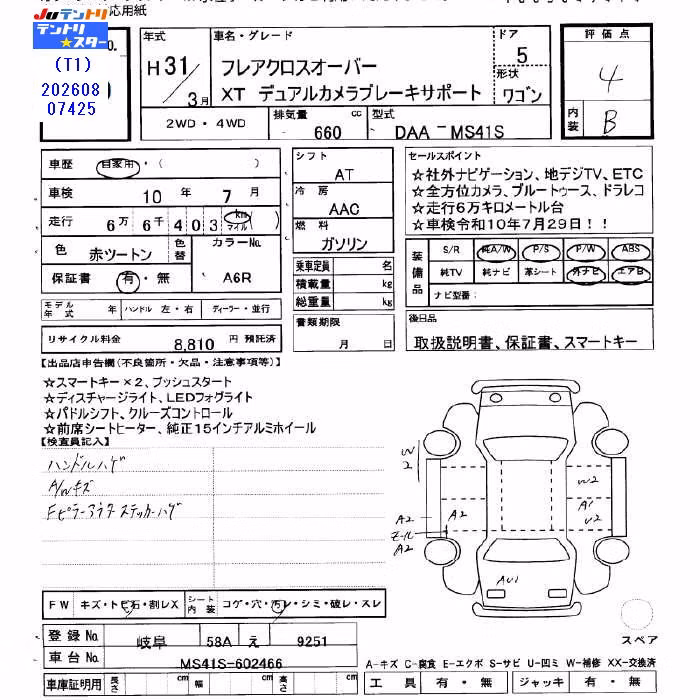 JUテントリ
テントリ
★スター
応用紙
(T1)
202608
07425
NO.
年式
H 31 / 3 月
車名・グレード
フレアクロスオーバー
XT デュアルカメラブレーキサポート
ドア
5
形状
ワゴン
評価点
4
内装
B
2WD・4WD
排気量
660 cc
型式
DAA - MS41S
車歴
自家用・( )
車検
10 年 7 月
走行
6万 6千 4 0 3 km マイル ( )
色
赤ツートン
色替
カラーNo.
A6R
保証書
有・無
モデル年式
年
ハンドル 左・右
ディーラー・並行
リサイクル料金
8,810 円 預託済
シフト
AT
冷房
AAC
燃料
ガソリン
乗車定員 名
積載量 kg
総重量 kg
書類期限
月 日
セールスポイント
☆社外ナビゲーション、地デジTV、ETC
☆全方位カメラ、ブルートゥース、ドラレコ
☆走行6万キロメートル台
☆車検令和10年7月29日！！
装備品
S/R 純A/W P/S P/W ABS
純TV 純ナビ 革シート 外ナビ エアB
ナビ型番:
後日品
取扱説明書、保証書、スマートキー
【出品店申告欄(不良箇所・欠品・注意事項等)】
☆スマートキー×2、プッシュスタート
☆ディスチャージライト、LEDフォグライト
☆パドルシフト、クルーズコントロール
☆前席シートヒーター、純正15インチアルミホイール
【検査員記入】
ハンドルハゲ
A/Wキズ
Fピラーアウタステッカーハゲ
W2
A2
モール
A2
A2
W2
A1
U2
AU1
スペア
FW
キズ・トビ石・割レX
シート内装
コゲ・穴・汚レ・シミ・破レ・スレ
登録No.
岐阜 58A え 9251
車台No.
MS41S-602466
車庫証明用
長さ cm
幅 cm
高さ cm
A-キズ C-腐食 E-エクボ S-サビ U-凹ミ W-補修 XX-交換済
工具 有・無
ジャッキ 有・無